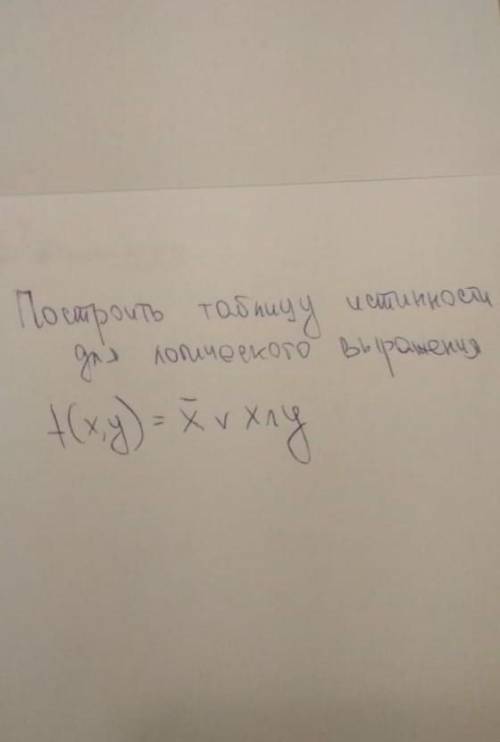 Построить таблицу истинности
для логического выражения
f(x,y) = x̄ ∨ x∧y